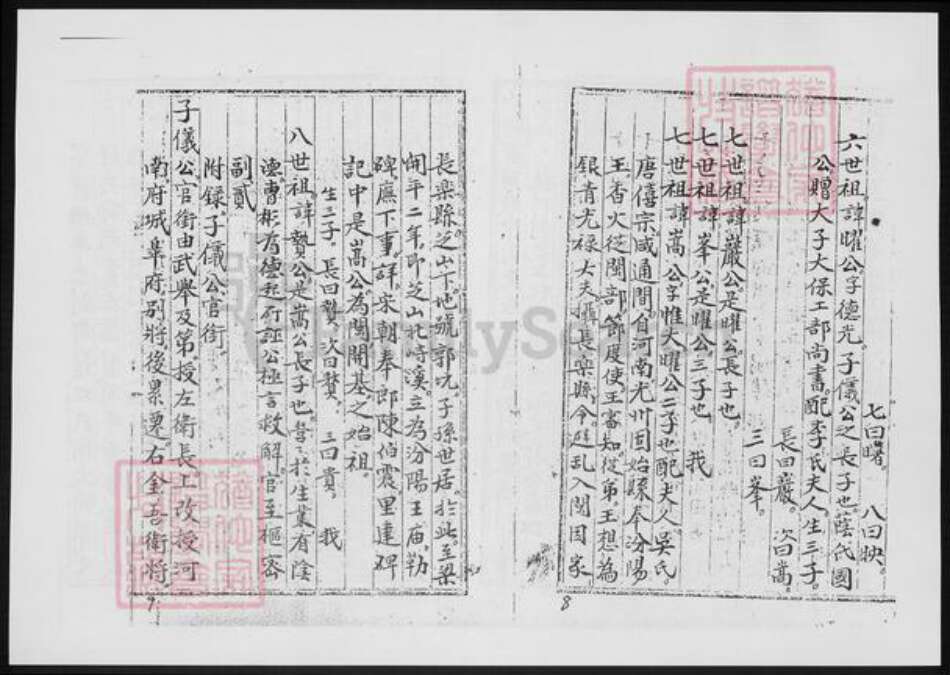 七曰曙。 八曰映。
六世祖諱曜公，字德光。子儀公之長子也。蔭代國
公贈大子大保工部尚書配李氏夫人。生三子。
長曰巖。 次曰嵩。
三曰峯。
七世祖諱巖公。是曜公長子也。
七世祖諱峯公是曜公三子也 我
七世祖諱嵩公字惟大曜公二子也配夫人吳氏。
唐僖宗咸通間，自河南光州固始縣奉汾陽
王香火從閩部節度使王審知從弟，王想為
銀青光祿大夫 長樂縣，今避乱入閩因家
8
長樂縣芝山下，地號郭坑。子孫世居於此。至梁
開平二年，即芝山北 溪，立為汾陽王庙，勒
碑廡下事，詳宋朝奉郎陳伯震里建碑
記中是嵩公為閩開基之始祖。
生三子。長曰贊。次曰贅。 三曰貴。 我
八世祖諱贊公。是嵩公長子也。 於生業有陰
德曹彬有德 行誣公極言救解。官至樞密
副貳
附錄子儀公官銜。
子儀公官銜由武舉及第。授左衛長上改授河
南府城皋府別將後累遷右金吾衛將
9
FamilySe